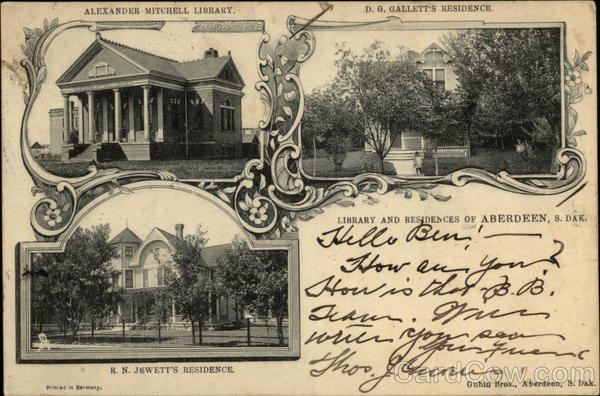 ALEXANDER MITCHELL LIBRARY.
D. G. GALLETT'S RESIDENCE.
LIBRARY AND RESIDENCES OF ABERDEEN, S. DAK.
Hello Ben! —
How are you?
How is that B.B.
Team.
write you soon
Your friend
Thos. J.
R. N. JEWETT'S RESIDENCE.
Printed in Germany.
Guhin Bros., Aberdeen, S. Dak.
CardCow.com